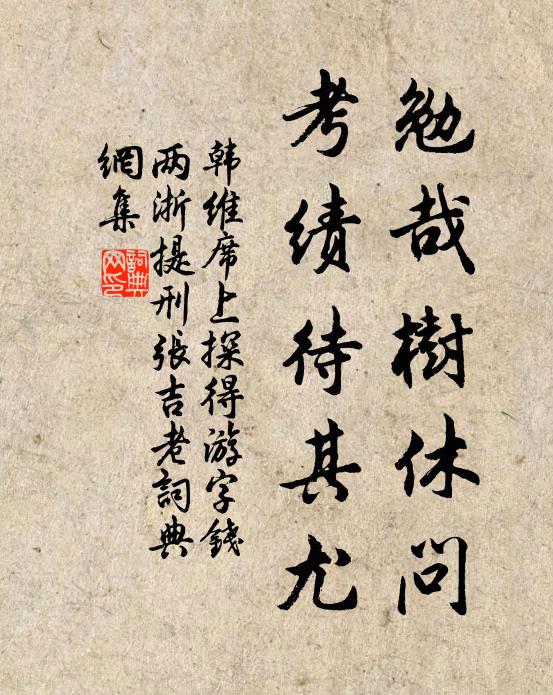 勉哉樹休問
考績待其尤
韩維席上探得游字錢
两浙提刑張吉老詞典
網集
詞典
网印